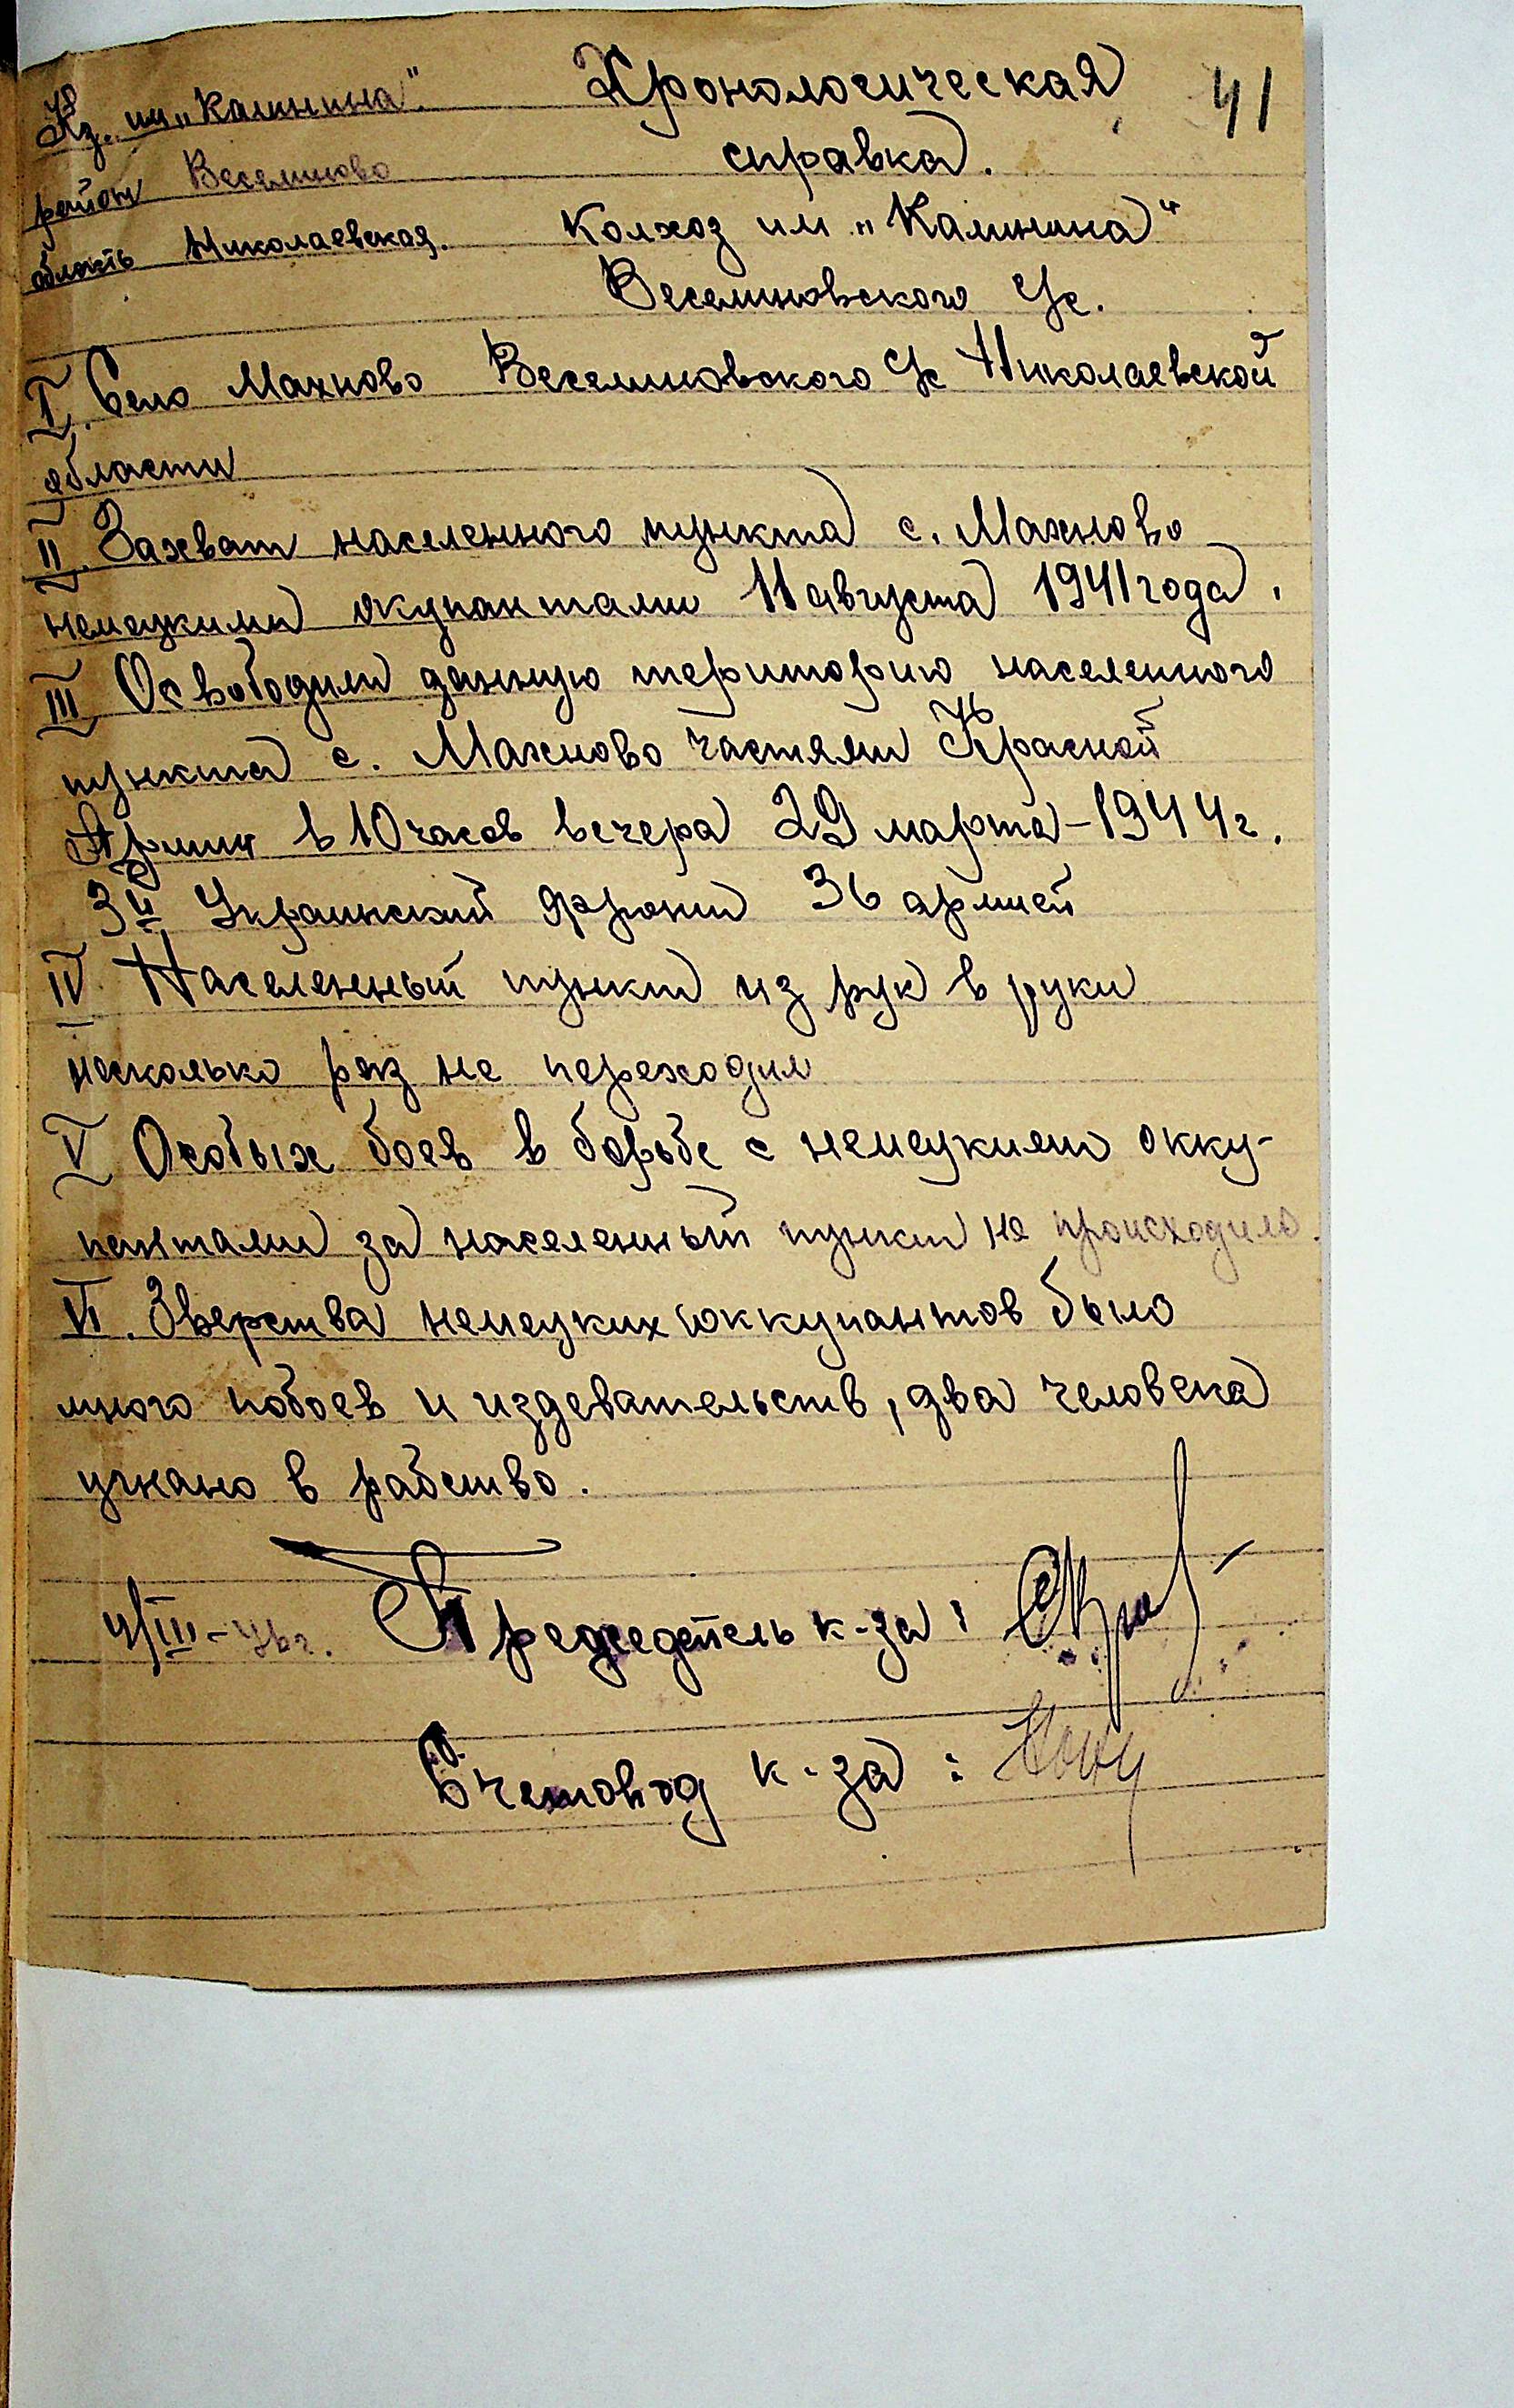 Кз. им „Калинина".
район Веселиново
область Николаевская.
41
Хронологическая
справка.
Колхоз им „Калинина"
Веселиновского Ус.
I. Село Махново Веселиновского Ус Николаевской
области
II. Захват населенного пункта с. Махново
немецкими окупантами 11 августа 1941 года.
III Освободили данную територию населенного
пункта с. Махново частями Красной
Армии в 10 часов вечера 29 марта - 1944 г.
3й Украинский фронт 36 армией
IV Населенный пункт из рук в руки
несколько раз не переходил
V Особых боев в борьбе с немецкими окку-
пантами за населенный пункт не происходило.
VI. Зверства немецких оккупантов было
много побоев и издевательств, два человека
угнано в рабство.
4/III-46г. Председатель к-за:
Счетовод к-за: